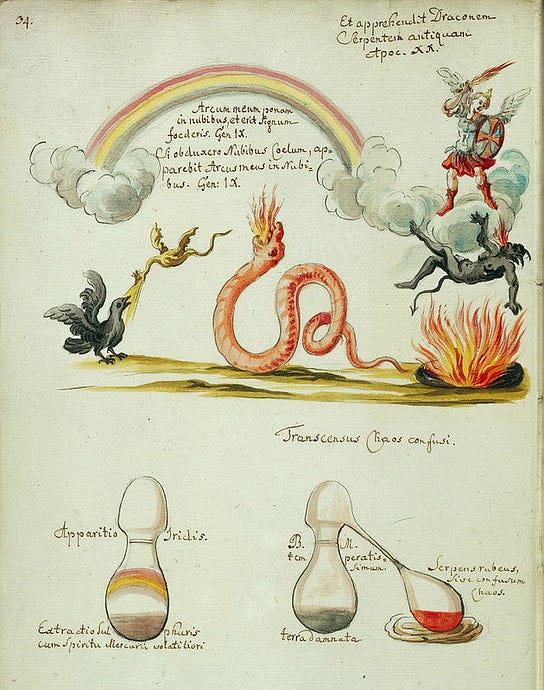 34.
Et apprehendit Draconem
Serpentem antiquam
Apoc. XX.
Arcum meum ponam
in nubibus, et erit signum
foederis. Gen IX.
Si obduxero Nubibus Coelum, ap=
parebit Arcus meus in Nubi=
bus. Gen: IX.
Transcensus Chaos confusi.
Apparitio Iridis.
Extractio Sulphuris
cum Spiritu Mercurii volatiliori
B. M.
tem peratis=
simum.
terra damnata
Serpens rubeus,
sive confusum
Chaos.